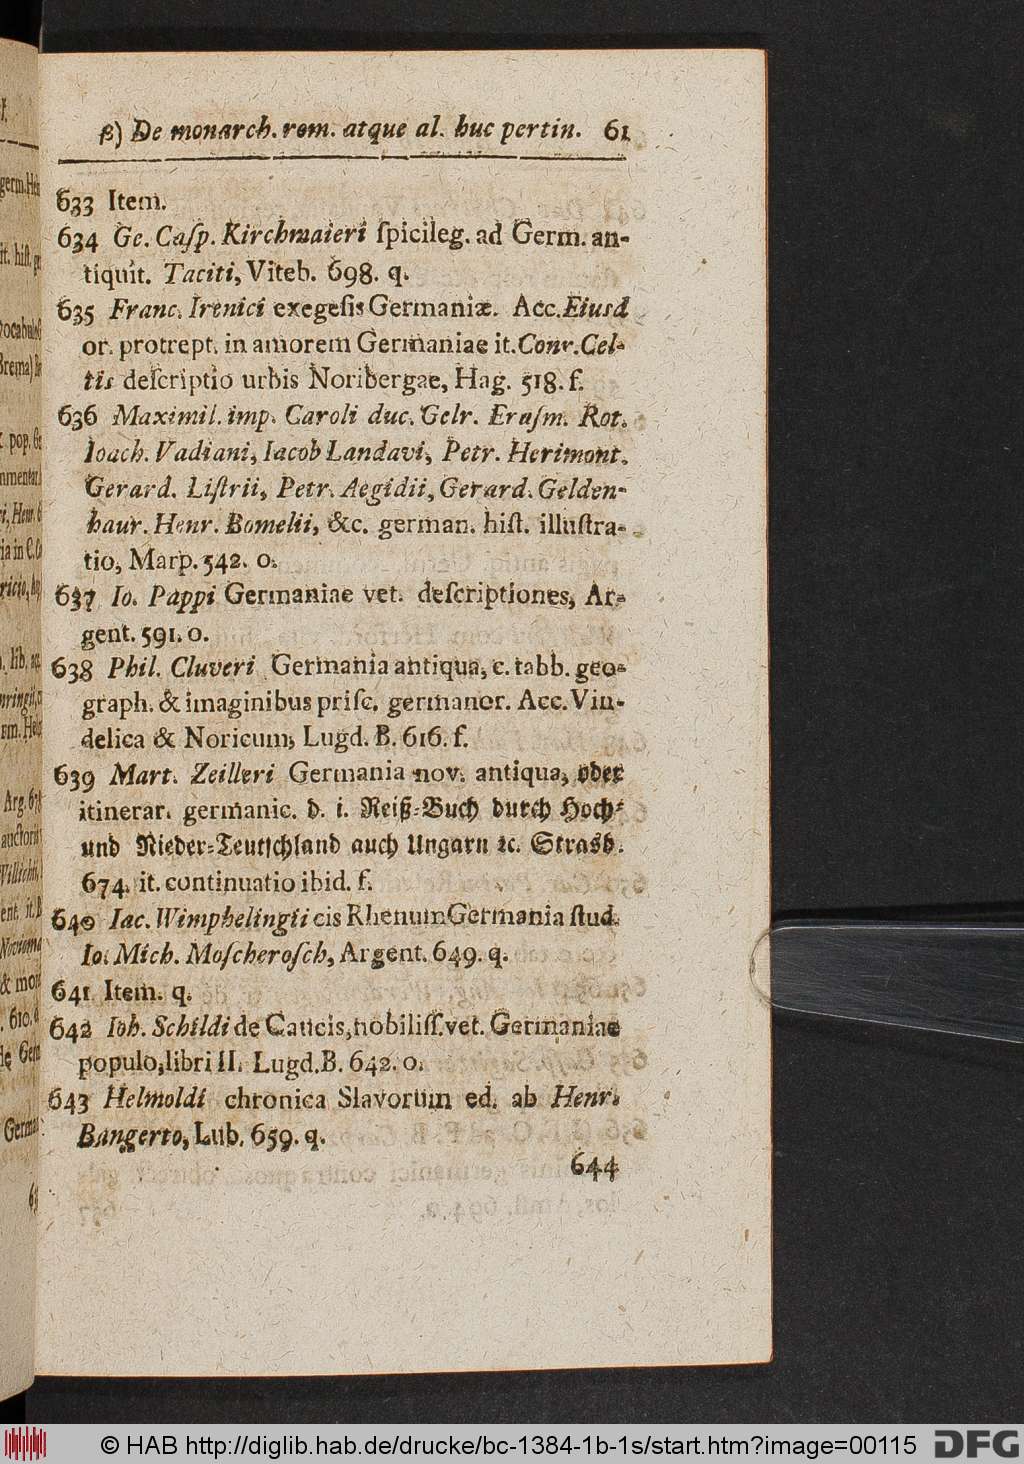 β) De monarch. rom. atque al. huc pertin. 61
633 Item.
634 Ge. Caſp. Kirchmaieri ſpicileg. ad Germ. an-
tiquit. Taciti, Viteb. 698. q.
635 Franc. Irenici exegeſis Germaniæ. Acc. Eiusd
or. protrept. in amorem Germaniae it. Conr. Cel-
tis deſcriptio urbis Noribergae, Hag. 518. f.
636 Maximil. imp. Caroli duc. Gelr. Eraſm. Rot.
Ioach. Vadiani, Iacob Landavi, Petr. Herimont.
Gerard. Liſtrii, Petr. Aegidii, Gerard. Gelden-
haur. Henr. Bomelii, &c. german. hiſt. illuſtra-
tio, Marp. 542. o.
637 Io. Pappi Germaniae vet. deſcriptiones, Ar-
gent. 591. o.
638 Phil. Cluveri Germania antiqua, c. tabb. geo-
graph. & imaginibus priſc. germanor. Acc. Vin-
delica & Noricum, Lugd. B. 616. f.
639 Mart. Zeilleri Germania nov. antiqua, oder
itinerar. germanic. d. i. Reiß-Buch durch Hoch-
und Nieder-Teutſchland auch Ungarn ꝛc. Strasb.
674. it. continuatio ibid. f.
640 Iac. Wimphelingii cis Rhenum Germania ſtud.
Io. Mich. Moſcheroſch, Argent. 649. q.
641 Item. q.
642 Ioh. Schildi de Caucis, nobiliſſ. vet. Germaniae
populo, libri II. Lugd. B. 642. o.
643 Helmoldi chronica Slavorum ed. ab Henr.
Bangerto, Lub. 659. q.
644
© HAB http://diglib.hab.de/drucke/bc-1384-1b-1s/start.htm?image=00115
DFG